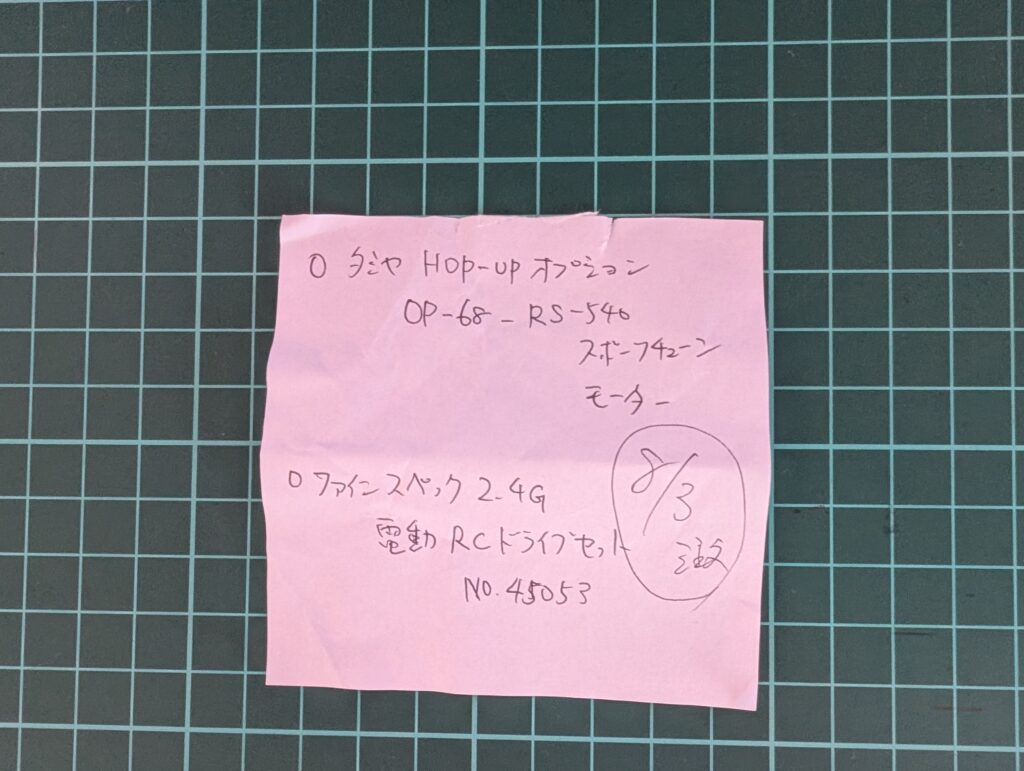 ○ タミヤ HOP-UP オプション
OP-68 - RS-540
スポーツチューン
モーター
○ ファインスペック 2.4G
電動 RCドライブセット
NO.45053
8/3
注文